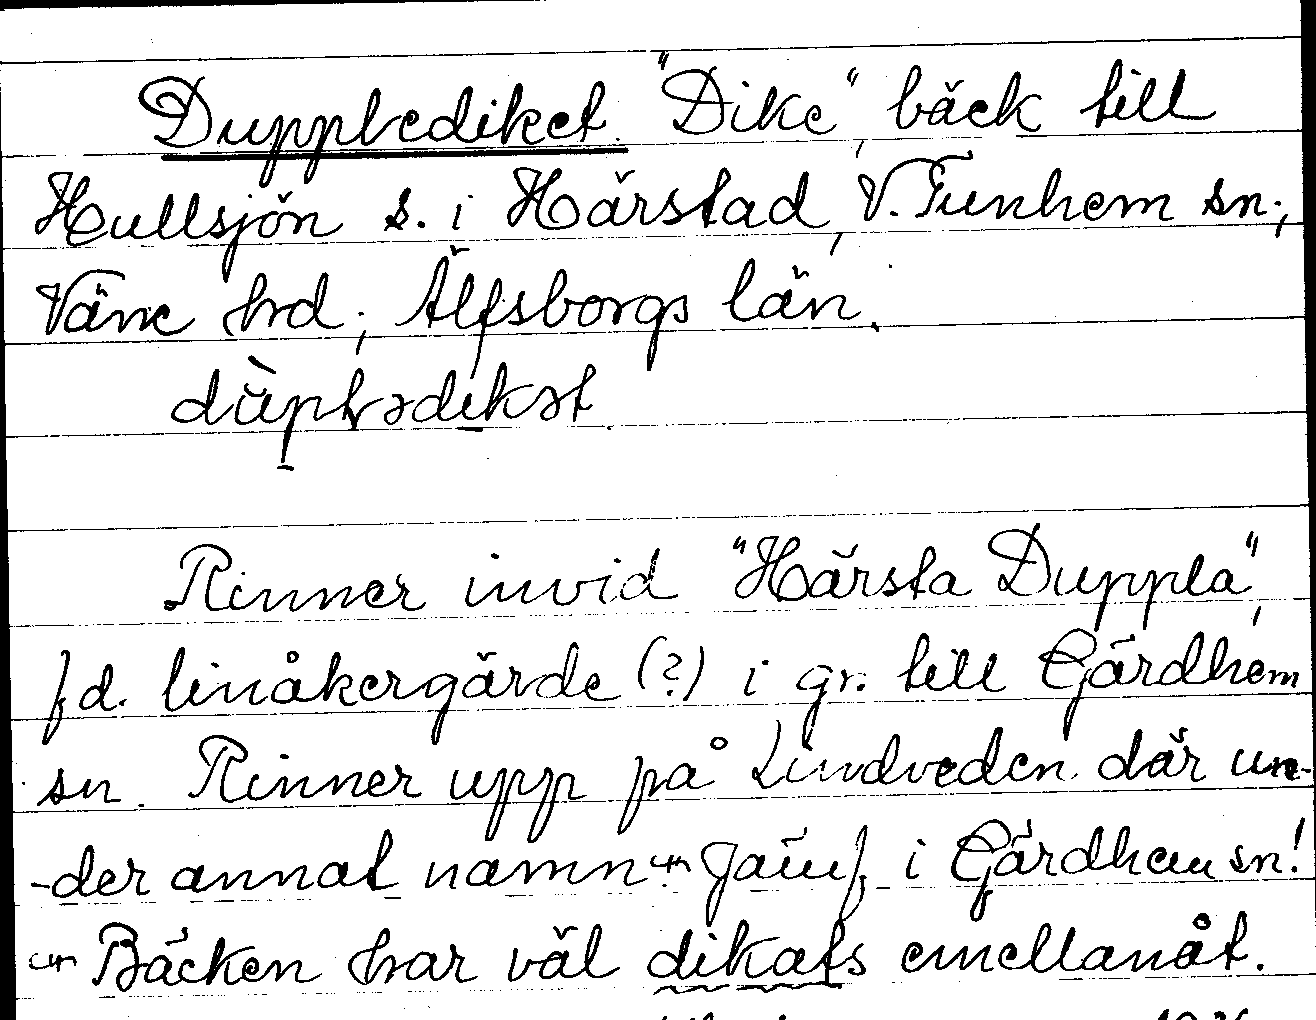 Dupplediket. "Dike", bäck till
Hullsjön s. i Härstad, V. Tunhem sn.,
Väne hrd., Älfsborgs län.
Rinner invid "Härsta Duppla",
f.d. linåkergärde (?) i gr. till Gärdhem
sn. Rinner upp på Lindveden där un-
-der annat namn. Jämf. i Gärdhem sn!
Bäcken har väl dikats emellanåt.